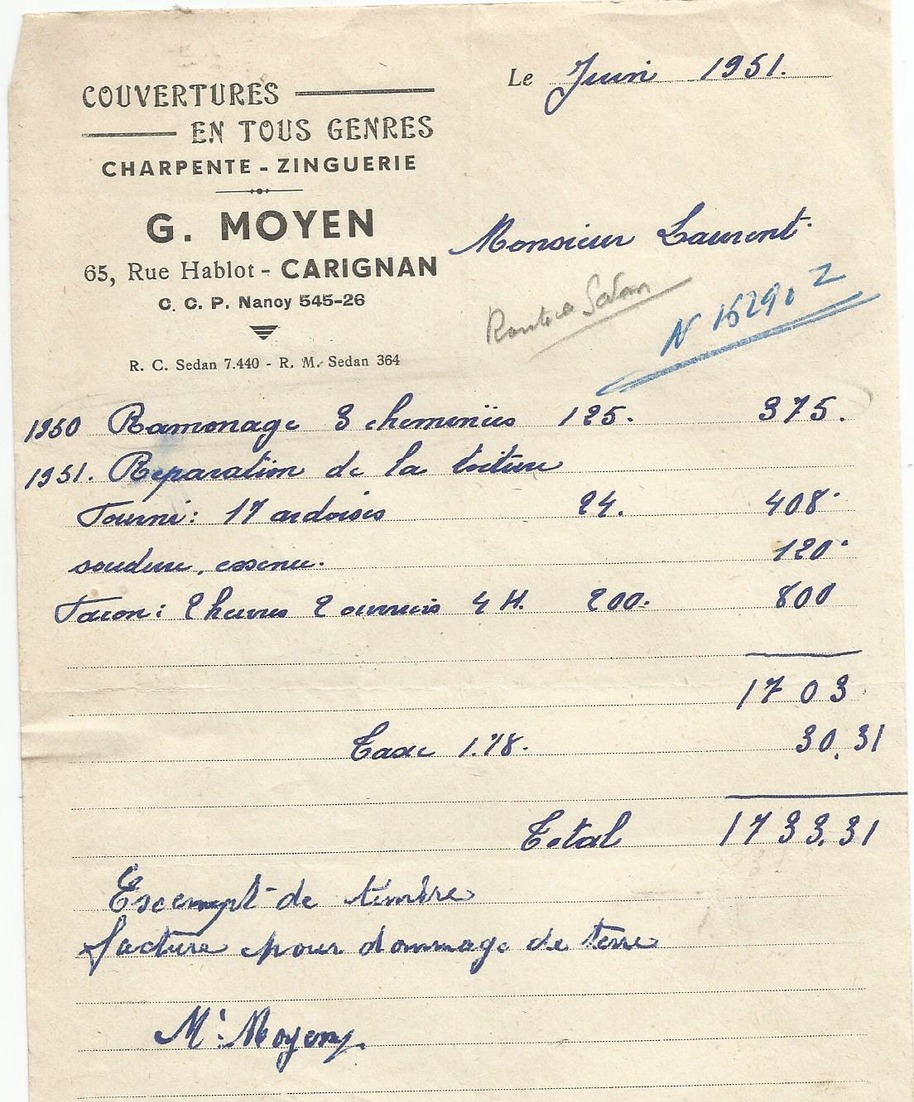 COUVERTURES
EN TOUS GENRES
CHARPENTE - ZINGUERIE
G. MOYEN
65, Rue Hablot - CARIGNAN
C. C. P. Nancy 545-26
R. C. Sedan 7.440 - R. M. Sedan 364
Le Juin 1951.
Monsieur Laurent.
1950 Ramonage 3 cheminées 125. 375.
1951. Reparation de la toiture
Fourni: 17 ardoises 24. 408.
soudure, essence. 120.
Facon: 2 heures 2 ouvriers 4 H. 200. 800
1703
Taxe 1.78. 30.31
Total 1733.31
Escempt de timbre
facture pour dommage de
Mr Moyen